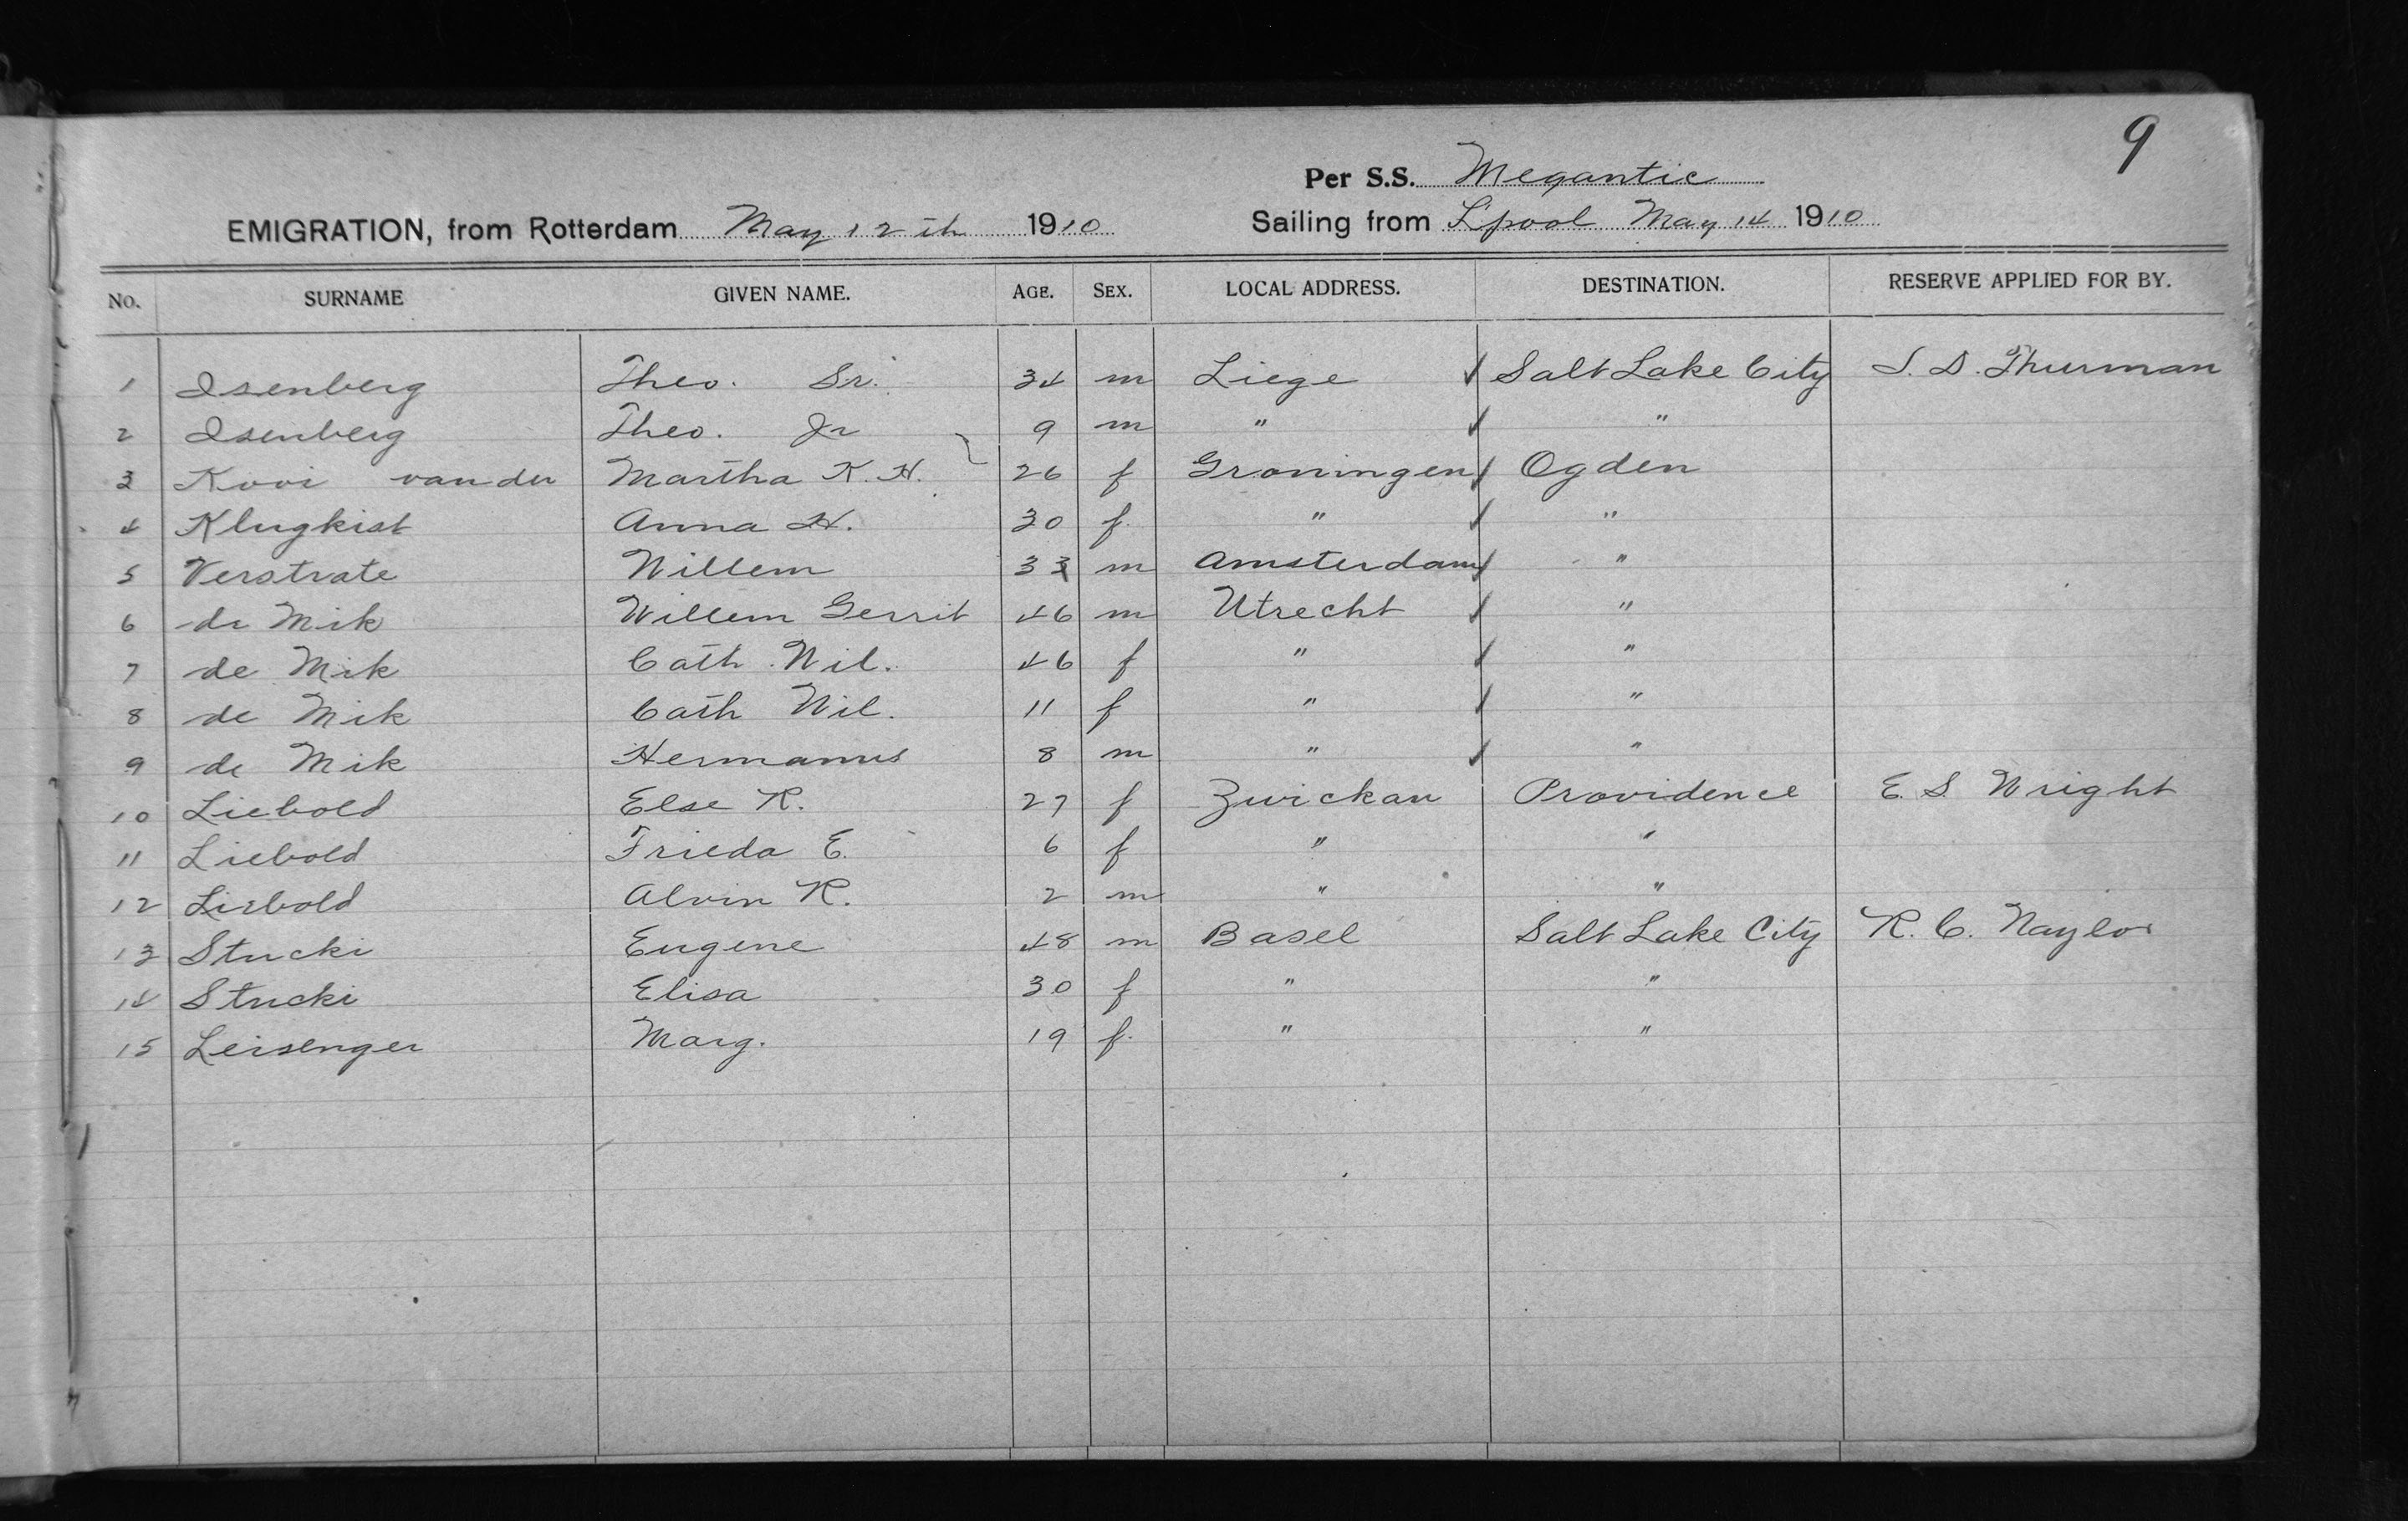 9
Per S.S. Megantic
EMIGRATION, from Rotterdam May 12th 1910 Sailing from L'pool May 14 1910
No. SURNAME GIVEN NAME. AGE. SEX. LOCAL ADDRESS. DESTINATION. RESERVE APPLIED FOR BY.
1 Isenberg Theo. Sr. 34 m Liege Salt Lake City S. D. Thurman
2 Isenberg Theo. Jr 9 m " "
3 Kooi van der Martha K. H. 26 f Groningen Ogden
4 Klugkist Anna H. 30 f. " "
5 Verstrate Willem 33 m Amsterdam "
6 de Mik Willem Gerrit 46 m Utrecht "
7 de Mik Cath. Wil. 46 f " "
8 de Mik Cath Wil. 11 f " "
9 de Mik Hermanus 8 m " "
10 Liebold Else R. 27 f Zwickau Providence E. S. Wright
11 Liebold Frieda E. 6 f " "
12 Liebold Alvin R. 2 m " "
13 Stucki Eugene 48 m Basel Salt Lake City R. C. Naylor
14 Stucki Elisa 30 f " "
15 Leisenger Marg. 19 f. " "